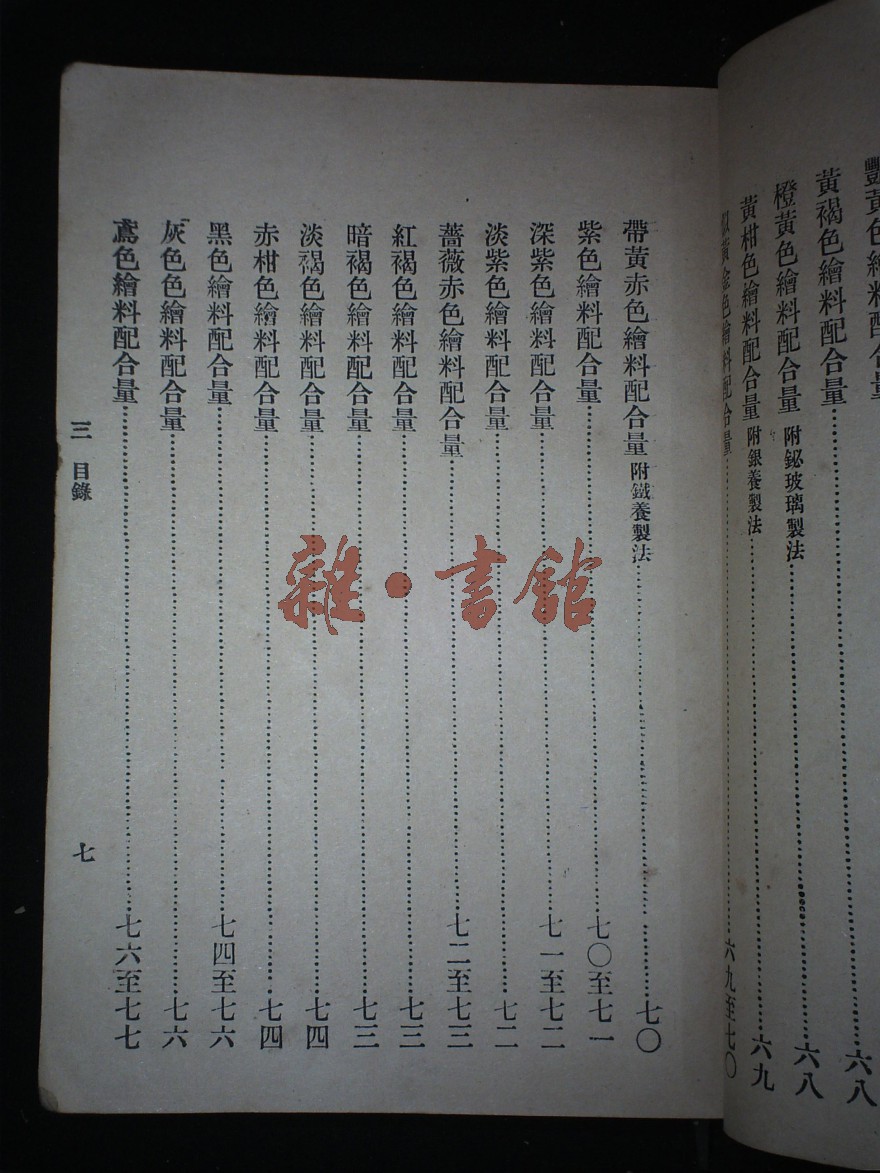 黃褐色繪料配合量……六八
橙黃色繪料配合量 附鉍玻璃製法……六八
黃柑色繪料配合量 附銀養製法……六九
色繪料配合量……六九至七〇
帶黃赤色繪料配合量 附鐵養製法……七〇
紫色繪料配合量……七〇至七一
深紫色繪料配合量……七一至七二
淡紫色繪料配合量……七二
薔薇赤色繪料配合量……七二至七三
紅褐色繪料配合量……七三
暗褐色繪料配合量……七三
淡褐色繪料配合量……七四
赤柑色繪料配合量……七四
黑色繪料配合量……七四至七六
灰色色繪料配合量……七六
鳶色繪料配合量……七六至七七
三 目錄 七
雜·書館